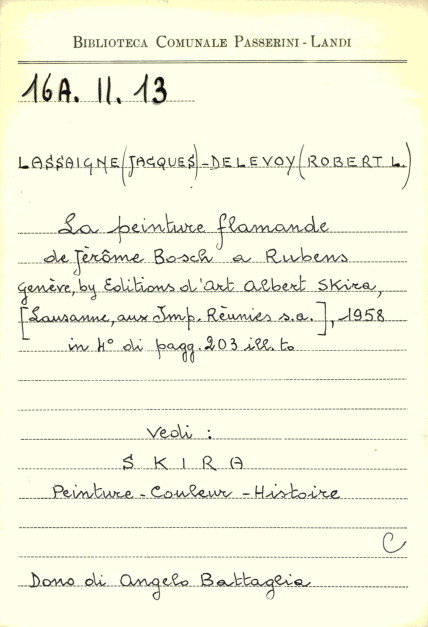 BIBLIOTECA COMUNALE PASSERINI-LANDI
16A. II. 13
LASSAIGNE (JACQUES)-DELEVOY (ROBERT L.)
La peinture flamande
de Jèrôme Bosch a Rubens
Genève, by Editions d'Art Albert Skira,
[Lausanne, aux Imp. Rèunies s.a.], 1958
in 4° di pagg. 203 ill. to
Vedi :
SKIRA
Peinture - Couleur - Histoire
C
Dono di Angelo Battaglia